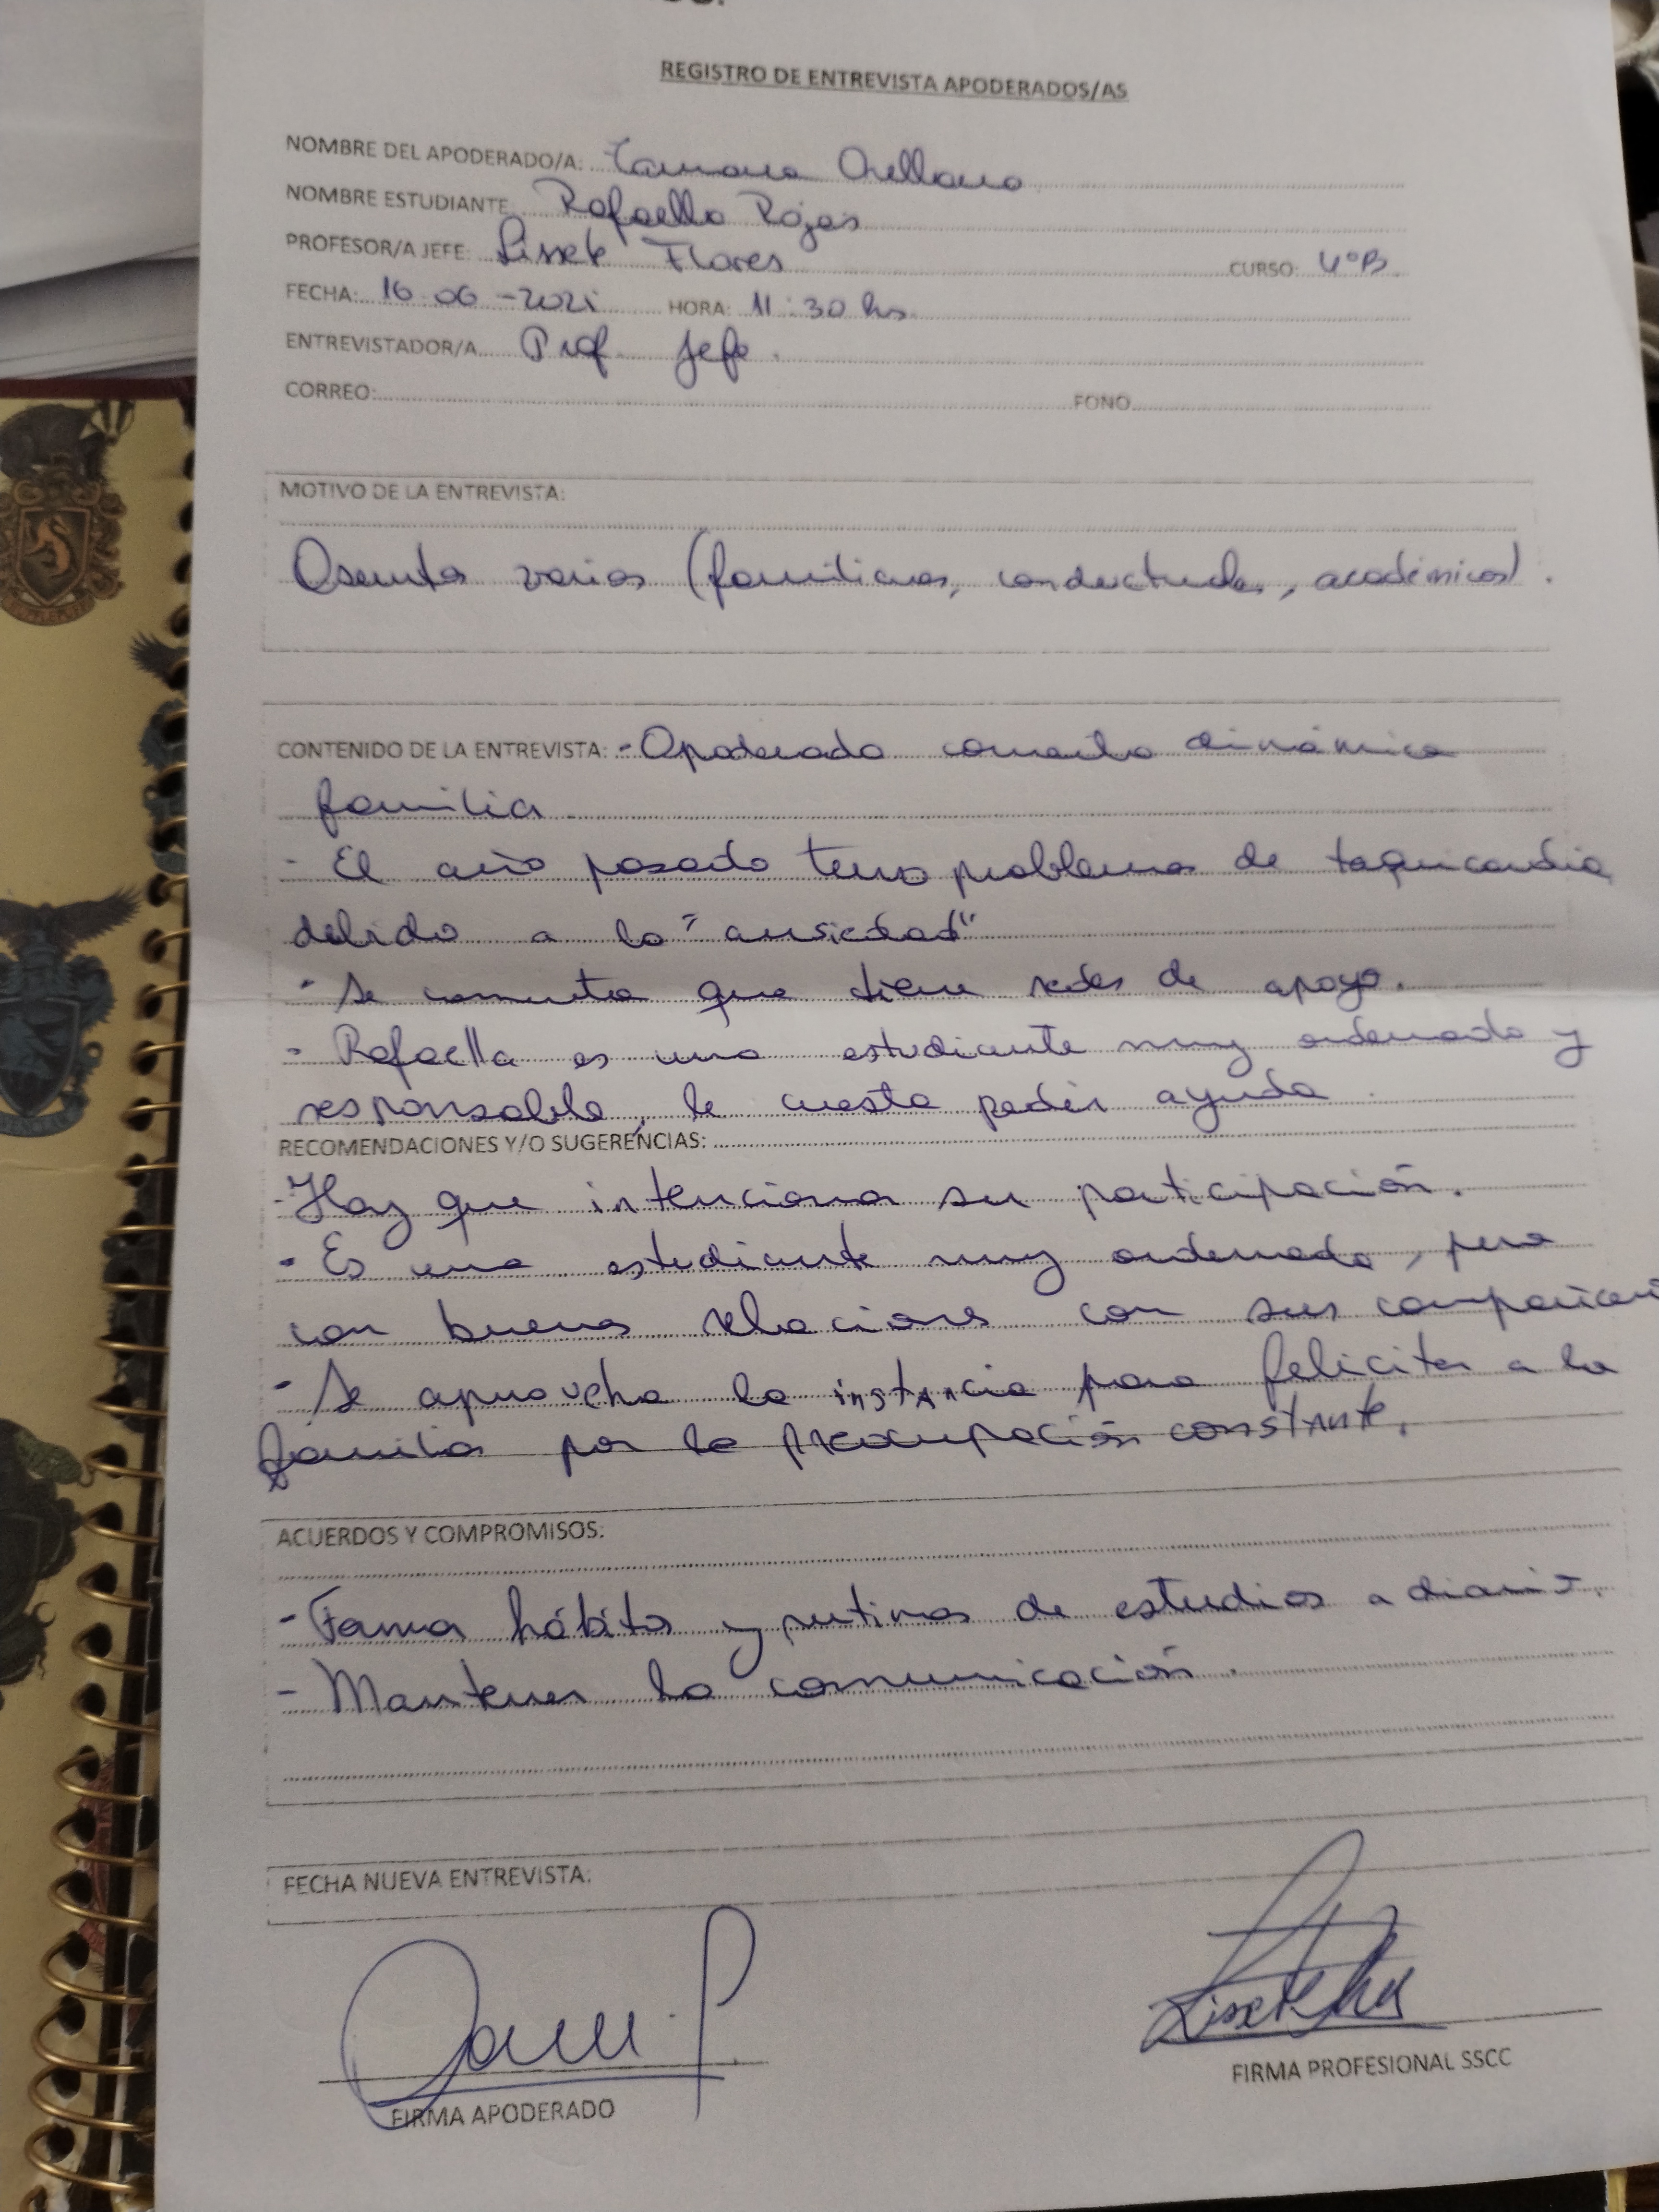 REGISTRO DE ENTREVISTA APODERADOS/AS
NOMBRE DEL APODERADO/A: Tamara Orellana
NOMBRE ESTUDIANTE: Rafaella Rojas
PROFESOR/A JEFE: Lissete Flores CURSO: 4°B
FECHA: 16-06-2021 HORA: 11:30 hs
ENTREVISTADOR/A Prof Jefe.
CORREO: FONO
MOTIVO DE LA ENTREVISTA:
varios (familiares, conductuales, académicos).
CONTENIDO DE LA ENTREVISTA: - Apoderada comenta dinámica
familia
- El año pasado tuvo problemas de taquicardia
debido a la "ansiedad"
- Se comenta que tiene redes de apoyo.
- Rafaella es una estudiante muy ordenada y
responsable, le cuesta pedir ayuda.
RECOMENDACIONES Y/O SUGERENCIAS:
- Hay que intencionar su participación.
- Es una estudiante muy ordenada, pero
con buenas relaciones con sus
- Se aprovecha la instancia para felicitar a la
familia por la preocupación constante.
ACUERDOS Y COMPROMISOS:
- Formar hábitos y rutinas de estudios a diario.
- Mantener la comunicación.
FECHA NUEVA ENTREVISTA:
FIRMA PROFESIONAL SSCC
FIRMA APODERADO